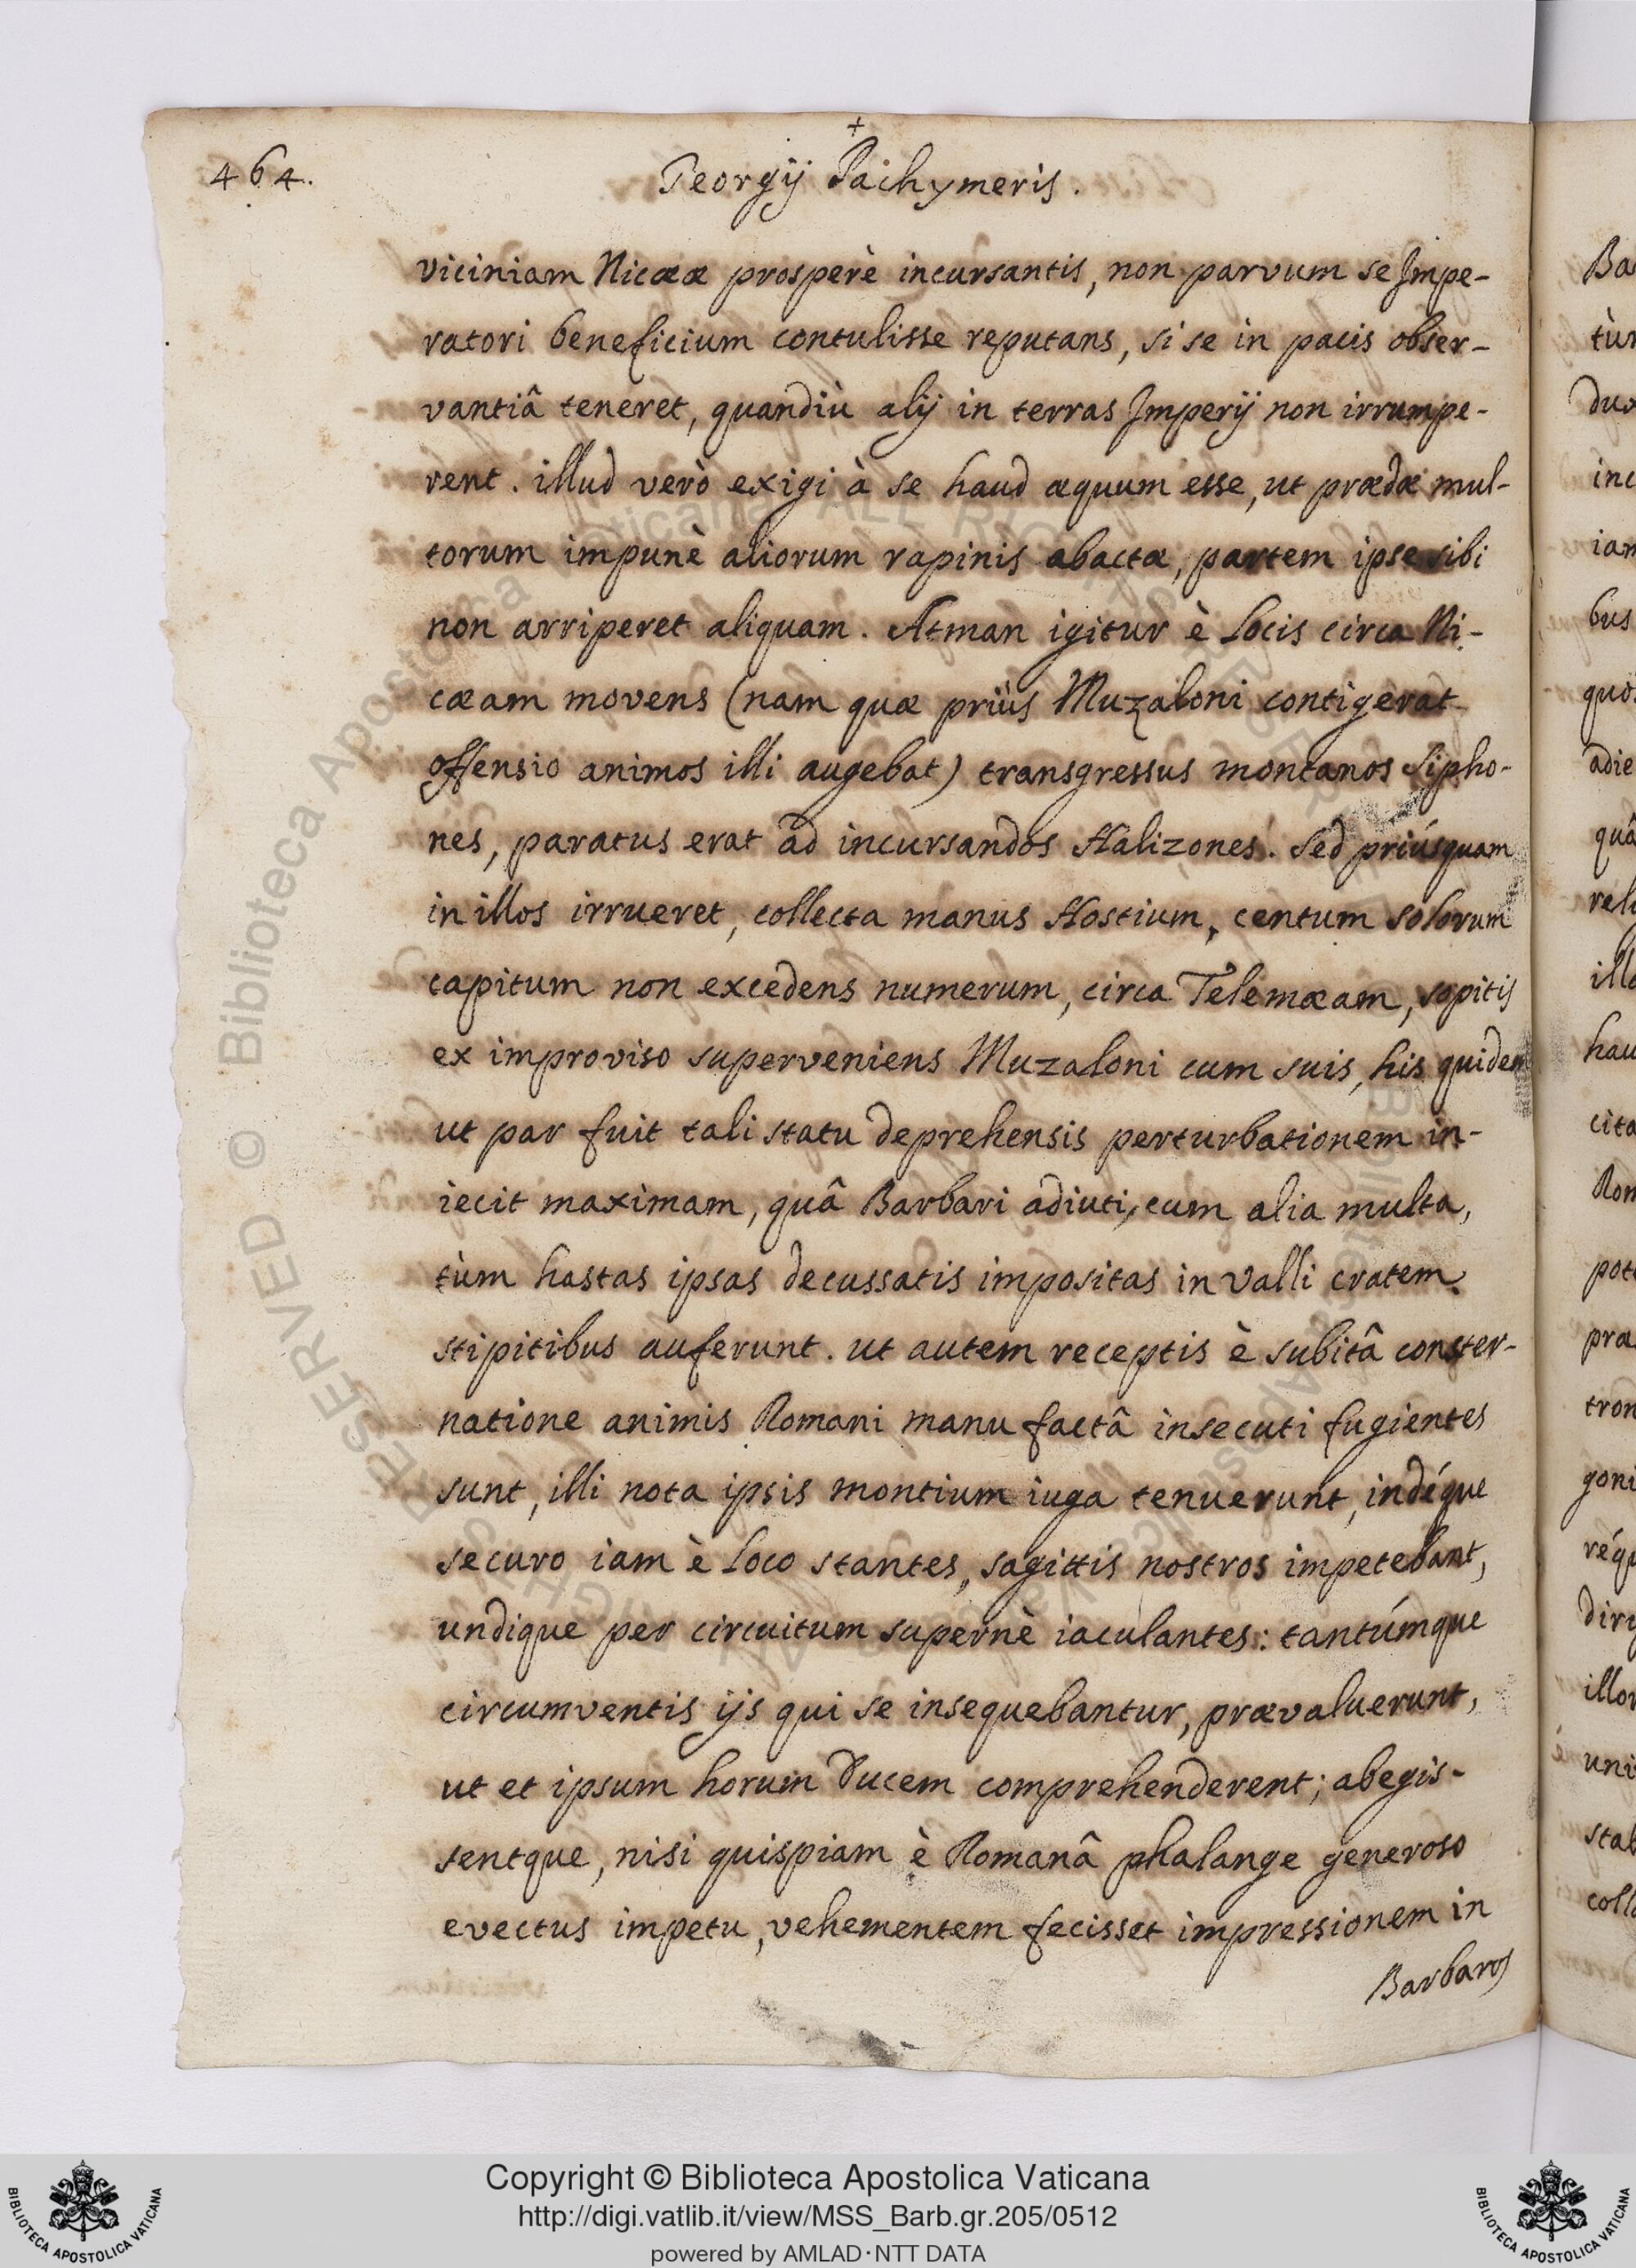 464.
+
Georgij Pachymeris.
viciniam Nicææ prosperè incursantis, non parvum se Impe-
ratori beneficium contulisse reputans, si se in pacis obser-
vantiâ teneret, quandiù alij in terras Imperij non irrumpe-
rent. illud verò exigi à se haud æquum esse, ut prædæ mul-
torum impunè aliorum rapinis abactæ, partem ipse sibi
non arriperet aliquam. Atman igitur è Locis circa Ni-
cæam movens (nam quæ priùs Muzaloni contigerat
offensio animos illi augebat) transgressus montanos Sipho-
nes, paratus erat ad incursandos Halizones. Sed priúsquam
in illos irrueret, collecta manus Hostium, centum solorum
capitum non excedens numerum, circa Telemæam, sopitis
ex improviso superveniens Muzaloni cum suis, his quidem
ut par fuit tali statu deprehensis perturbationem in-
iecit maximam, quâ Barbari adiuti, cum alia multa,
tùm hastas ipsas decussatis impositas in Valli cratem
stipitibus auferunt. ut autem receptis è subitâ conster-
natione animis Romani manu factâ insecuti fugientes
sunt, illi nota ipsis montium iuga tenuerunt, indéque
securo iam è Loco stantes, sagittis nostros impetebant,
undique per circuitum supernè iaculantes: tantúmque
circumventis ijs qui se insequebantur, prævaluerunt,
ut et ipsum horum Ducem comprehenderent; abegis-
sentque, nisi quispiam è Romanâ phalange generoso
evectus impetu, vehementem fecisset impressionem in
Barbaros
Copyright © Biblioteca Apostolica Vaticana
http://digi.vatlib.it/view/MSS_Barb.gr.205/0512
powered by AMLAD·NTT DATA
BIBLIOTECA APOSTOLICA VATICANA
BIBLIOTECA APOSTOLICA VATICANA